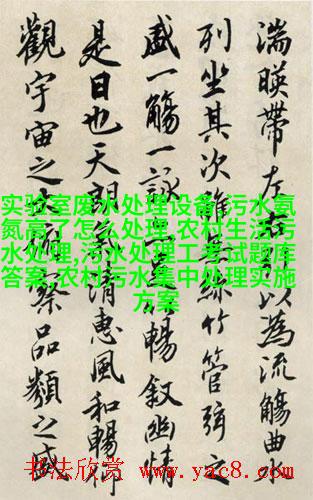 湍暎帶左右以為流觴曲
列坐其次雖無絲竹管弦之
盛一觴一詠足以暢敘幽情
是日也天朗氣清惠風和暢仰
觀宇宙之大俯察品類之盛
实验室废水处理设备,污水氨
氮高了怎么处理,农村生活污
水处理,污水处理工考试题库
答案,农村污水集中处理实施
方案
书法欣赏 www.yac8.com